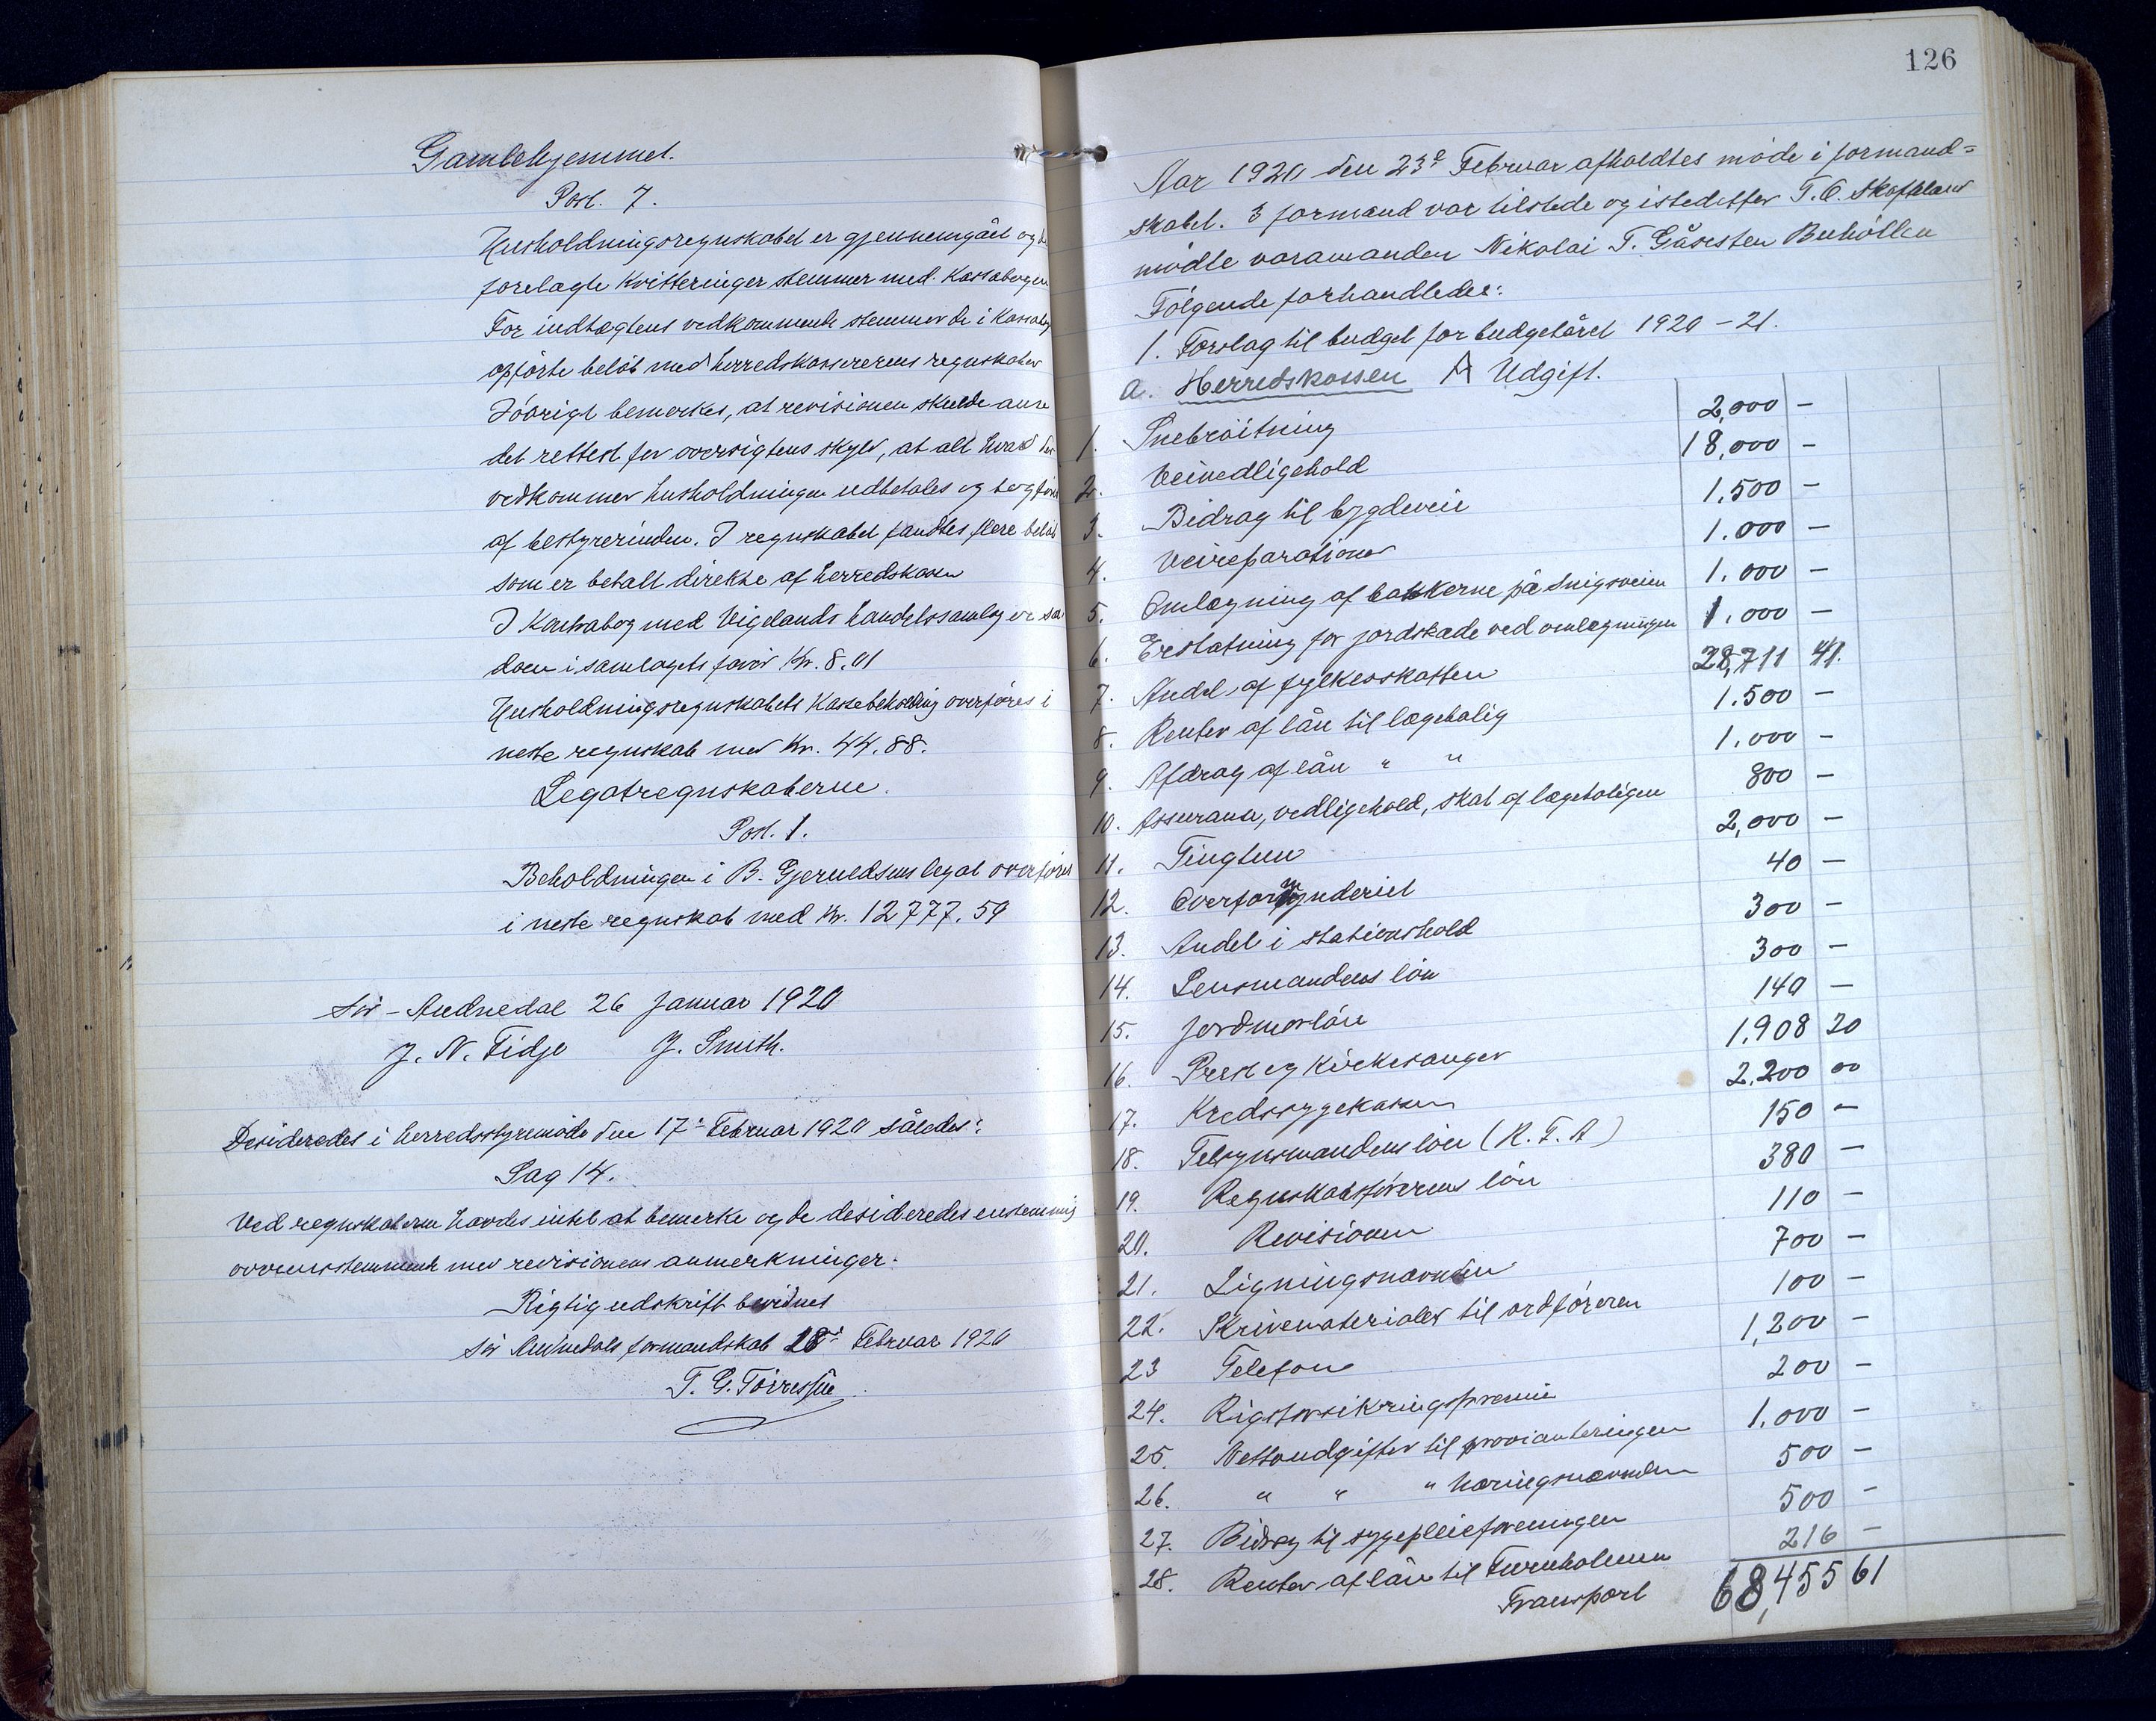 Gamlehjemmet.
Post. 7.
Husholdningsregnskabet er gjennemgået og
forelagte kvitteringer stemmer med. Kassabogen
For indtægtens vedkommende stemmer de i Kassabog
opførte beløb med herredskassererens regnskaber
Iøvrigt bemerkes, at revisionen skulde anse
det rettest for oversigtens skyld, at alt hvad der
vedkommer husholdningen udbetales og bogføres
af bestyrerinden. I regnskabet fandtes flere beløb
som er betalt direkte af herredskassen
I Kontrabog med Vigelands handelssamlag er sal
doen i samlagets favør Kr. 8.01
Husholdningsregnskabets Kassebeholdning overføres i
neste regnskab med Kr. 44.88.
Legatregnskaberne.
Post. 1.
Beholdningen i B. Gjeruldsens legat overføres
i neste regnskab med Kr. 12777.59
Sør-Audnedal 26 Januar 1920
J. N. Tidje J. Smith.
Desideredes i herredsstyremøde den 17de Februar 1920 således:
Sag 14.
Ved regnskaberne havdes intet at bemerke og de desideredes enstemmig
overensstemmende med revisionens anmerkninger.
Rigtig udskrift bevidnes
Sør Audnedals formandskab 18de Februar 1920
T. G. Tørressen
126
Aar 1920 den 23de Februar afholdtes møde i formand=
skabet. 3 formænd var tilstede og istedetfor T. O. Skofteland
mødte varamanden Nikolai T. Gåsesten Buhøllen
Følgende forhandledes:
1. Forslag til budget for budgetåret 1920-21.
a. Herredskassen A Udgift.
1. Snebrøitning 2,000 -
2. Veivedligehold 18,000 -
3. Bidrag til bygdeveie 1.500 -
4. Veireparationer 1.000 -
5. Omlægning af bakkerne på Snigsveien 1.000 -
6. Erstatning for jordskade ved omlægningen 1.000 -
7. Andel af fylkesskatten 28,711 41.
8. Renter af lån til lægebolig 1.500 -
9. Afdrag af lån " " 1.000 -
10. Assurance, vedligehold, skat af lægeboligen 800 -
11. Tingtun 2,000 -
12. Overformynderiet 40 -
13. Andel i stationshold 300 -
14. Lensmandens løn 300 -
15. Jordmorløn 140 -
16. Prest og kirkesanger 1,908 20
17. Kredssygekassen 2.200 00
18. Tilsynsmandens løn (R. F. A) 150 -
19. Regnskabsførerens løn 380 -
20. Revisionen 110 -
21. Ligningsnævnden 700 -
22. Skrivematerialer til ordføreren 100 -
23 Telefon 1,200 -
24. Rigsforsikringspremie 200 -
25. Nettoudgifter til provianteringen 1.000 -
26. " " " næringsnævnden 500 -
27. Bidrag til sygepleieforeningen 500 -
28. Renter af lån til Furuholmen 216 -
Transport 68,455 61